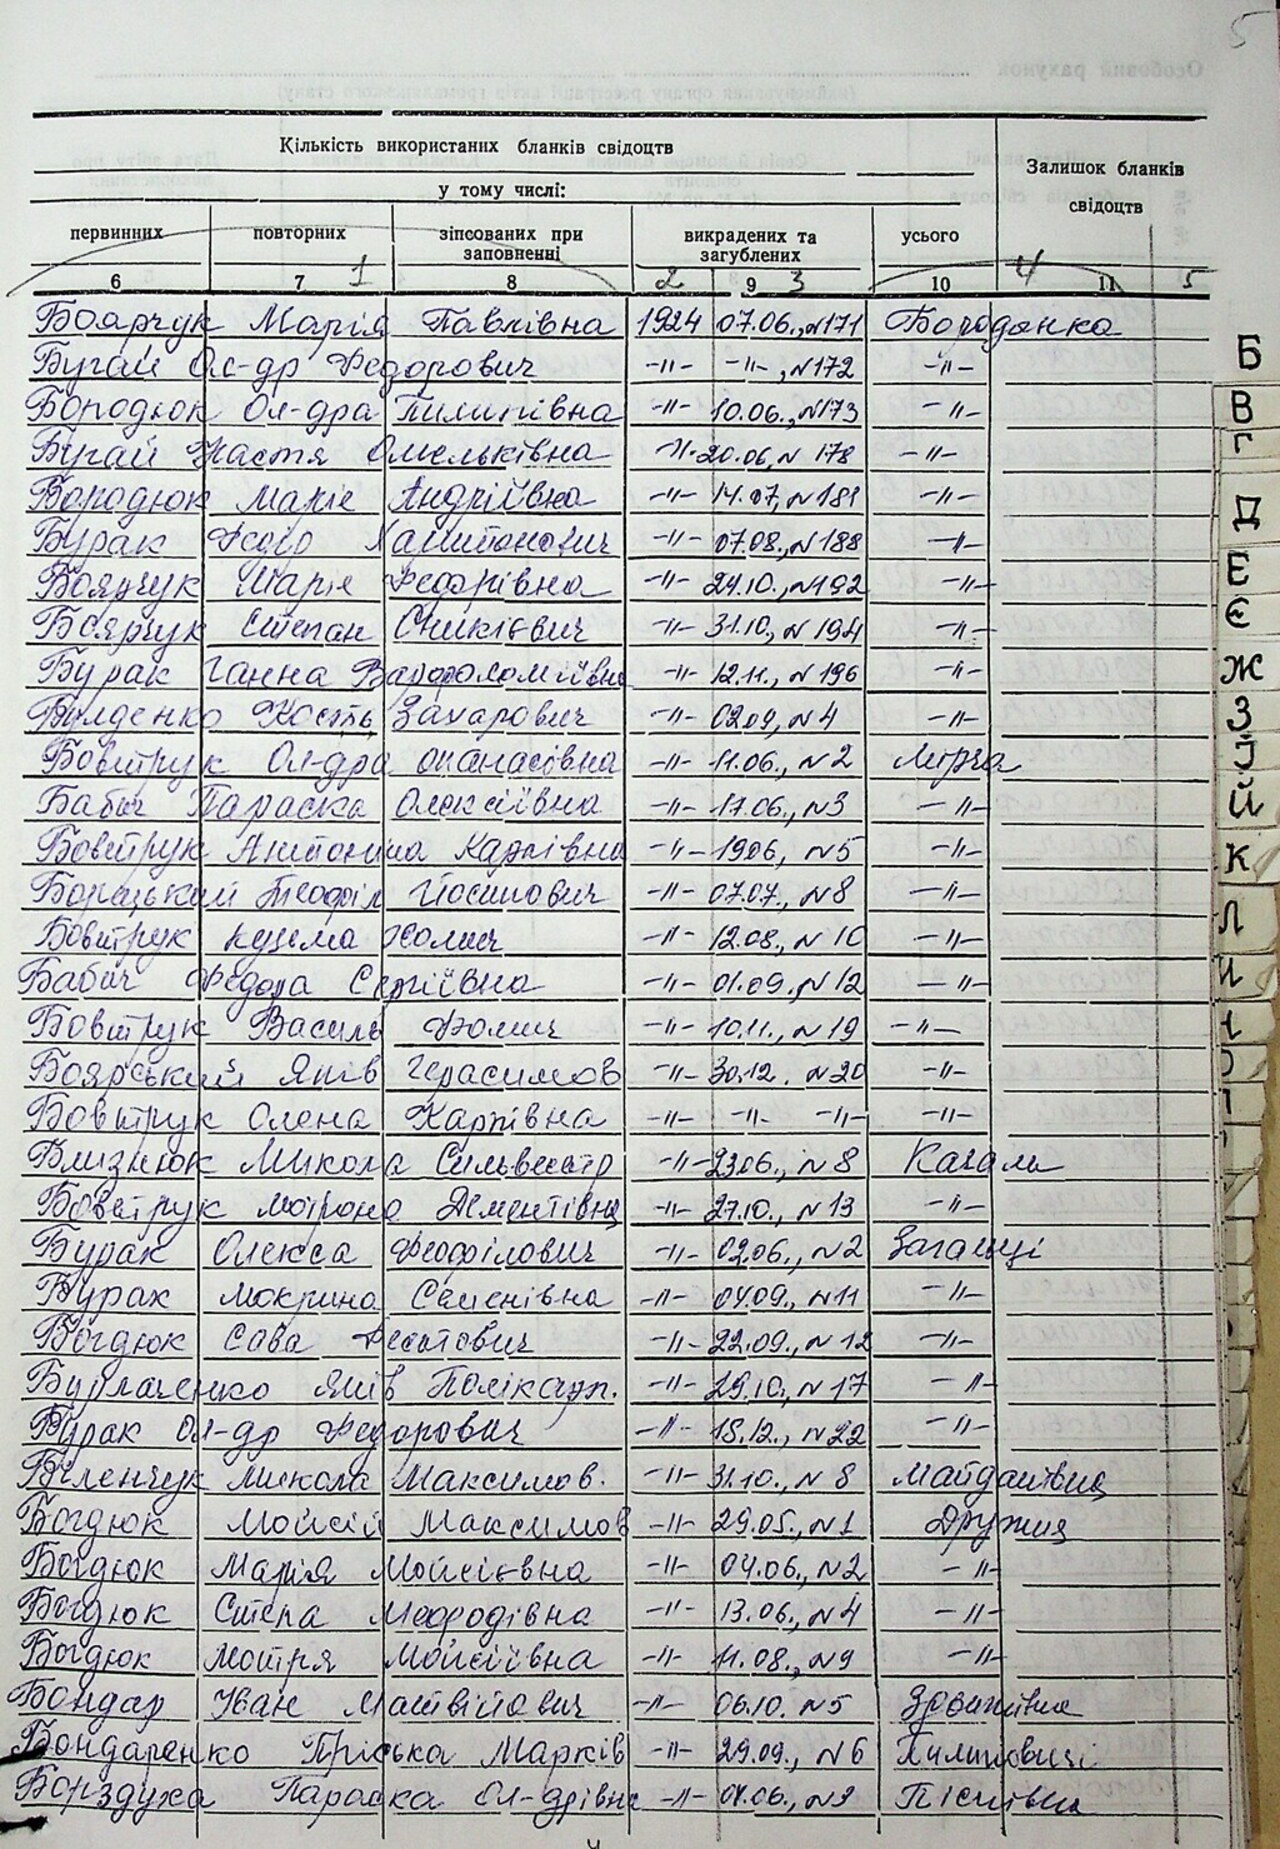 5
Кількість використаних бланків свідоцтв
Залишок бланків свідоцтв
у тому числі:
первинних повторних зіпсованих при заповненні викрадених та загублених усього
6 7 1 8 2 9 3 10 4 11 5
Боярчук Марія Павлівна 1924 07.06., N171 Бородянка
Бугай Ол-др Федорович -"- -"-, N172 -"-
Бородюк Ол-дра Пилипівна -"- 10.06., N173 -"-
Бугай Настя Омельківна -"- 20.06, N 178 -"-
Бородюк Марія Андріївна -"- 14.07, N181 -"-
Бурак Федір Харитонович -"- 07.08., N188 -"-
Боярчук Марія Федорівна -"- 24.10., N192 -"-
Боярчук Степан Оникієвич -"- 31.10., N 194 -"-
Бурак Ганна Варфоломіївна -"- 12.11., N196 -"-
Кость Захарович -"- 02.09, N4 -"-
Бовтрук Ол-дра Опанасівна -"- 11.06., N2 Мирча
Бабич Параска Олексіївна -"- 17.06., N3 -"-
Бовтрук Антоніна Карпівна -"- 19.06, N5 -"-
Теофіл Йосипович -"- 07.07., N8 -"-
Бовтрук Кузьма Фомич -"- 12.08., N 10 -"-
Бабич Федора Сергіївна -"- 01.09., N12 -"-
Бовтрук Василь Фомич -"- 10.11., N19 -"-
Боярський Яків Герасимов -"- 30.12. N20 -"-
Бовтрук Олена Карпівна -"- -"- -"- -"-
Близнюк Микола Сильвестр -"- 23.06., N8 Качали
Бовтрук Мотрона Дементівна -"- 27.10., N13 -"-
Бурак Олекса Феофілович -"- 02.06., N2 Загальці
Бурах Мокрина Семенівна -"- 04.09., N11 -"-
Богдюк Сава -"- 22.09., N 12 -"-
Бурлаченко Яків Полікарп. -"- 29.10., N17 -"-
Бурак Ол-др Федорович -"- 18.12., N22 -"-
Біленчук Микола Максимов. -"- 31.10., N 8 Майданівка
Богдюк Мойсій Максимов -"- 29.05., N1 Дружня
Богдюк Марія Мойсієвна -"- 04.06., N2 -"-
Богдюк Степа Мефодівна -"- 13.06., N4 -"-
Богдюк Мотря Мойсіївна -"- 11.08., N9 -"-
Бондар Іван Матвійович -"- 06.10. N5 Здвижівка
Бондаренко Пріська Марків -"- 29.09., N6 Пилиповичі
Борздуха Параска Ол-дрівна -"- 04.06., N2 Пісківка
Б
В
Г
Д
Е
Є
Ж
З
І
Й
К
Л